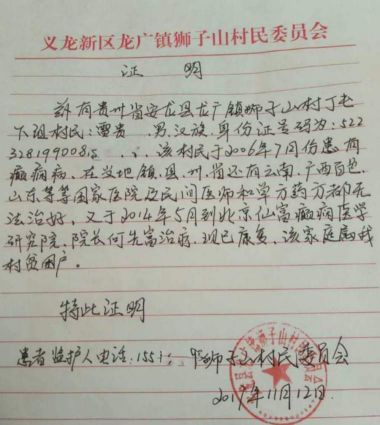 义龙新区龙广镇狮子山村民委员会
证 明
兹有贵州省安龙县龙广镇狮子山村丁毛
下组村民:覃贵 男,汉族,身份证号码为:522
32819900815 ,该村民于2006年7月份患有
癫痫病,在当地镇.县.州.省还有云南.广西百色.
山东等等国家医院及民间医师和单方药方都无
法治好,又于2014年5月到北京仙富癫痫医学
研究院,院长何先富治疗,现已康复,该家庭属我
村贫困户。
特此证明
患者监护人电话:155 狮子山村民委员会
2017年11月12日